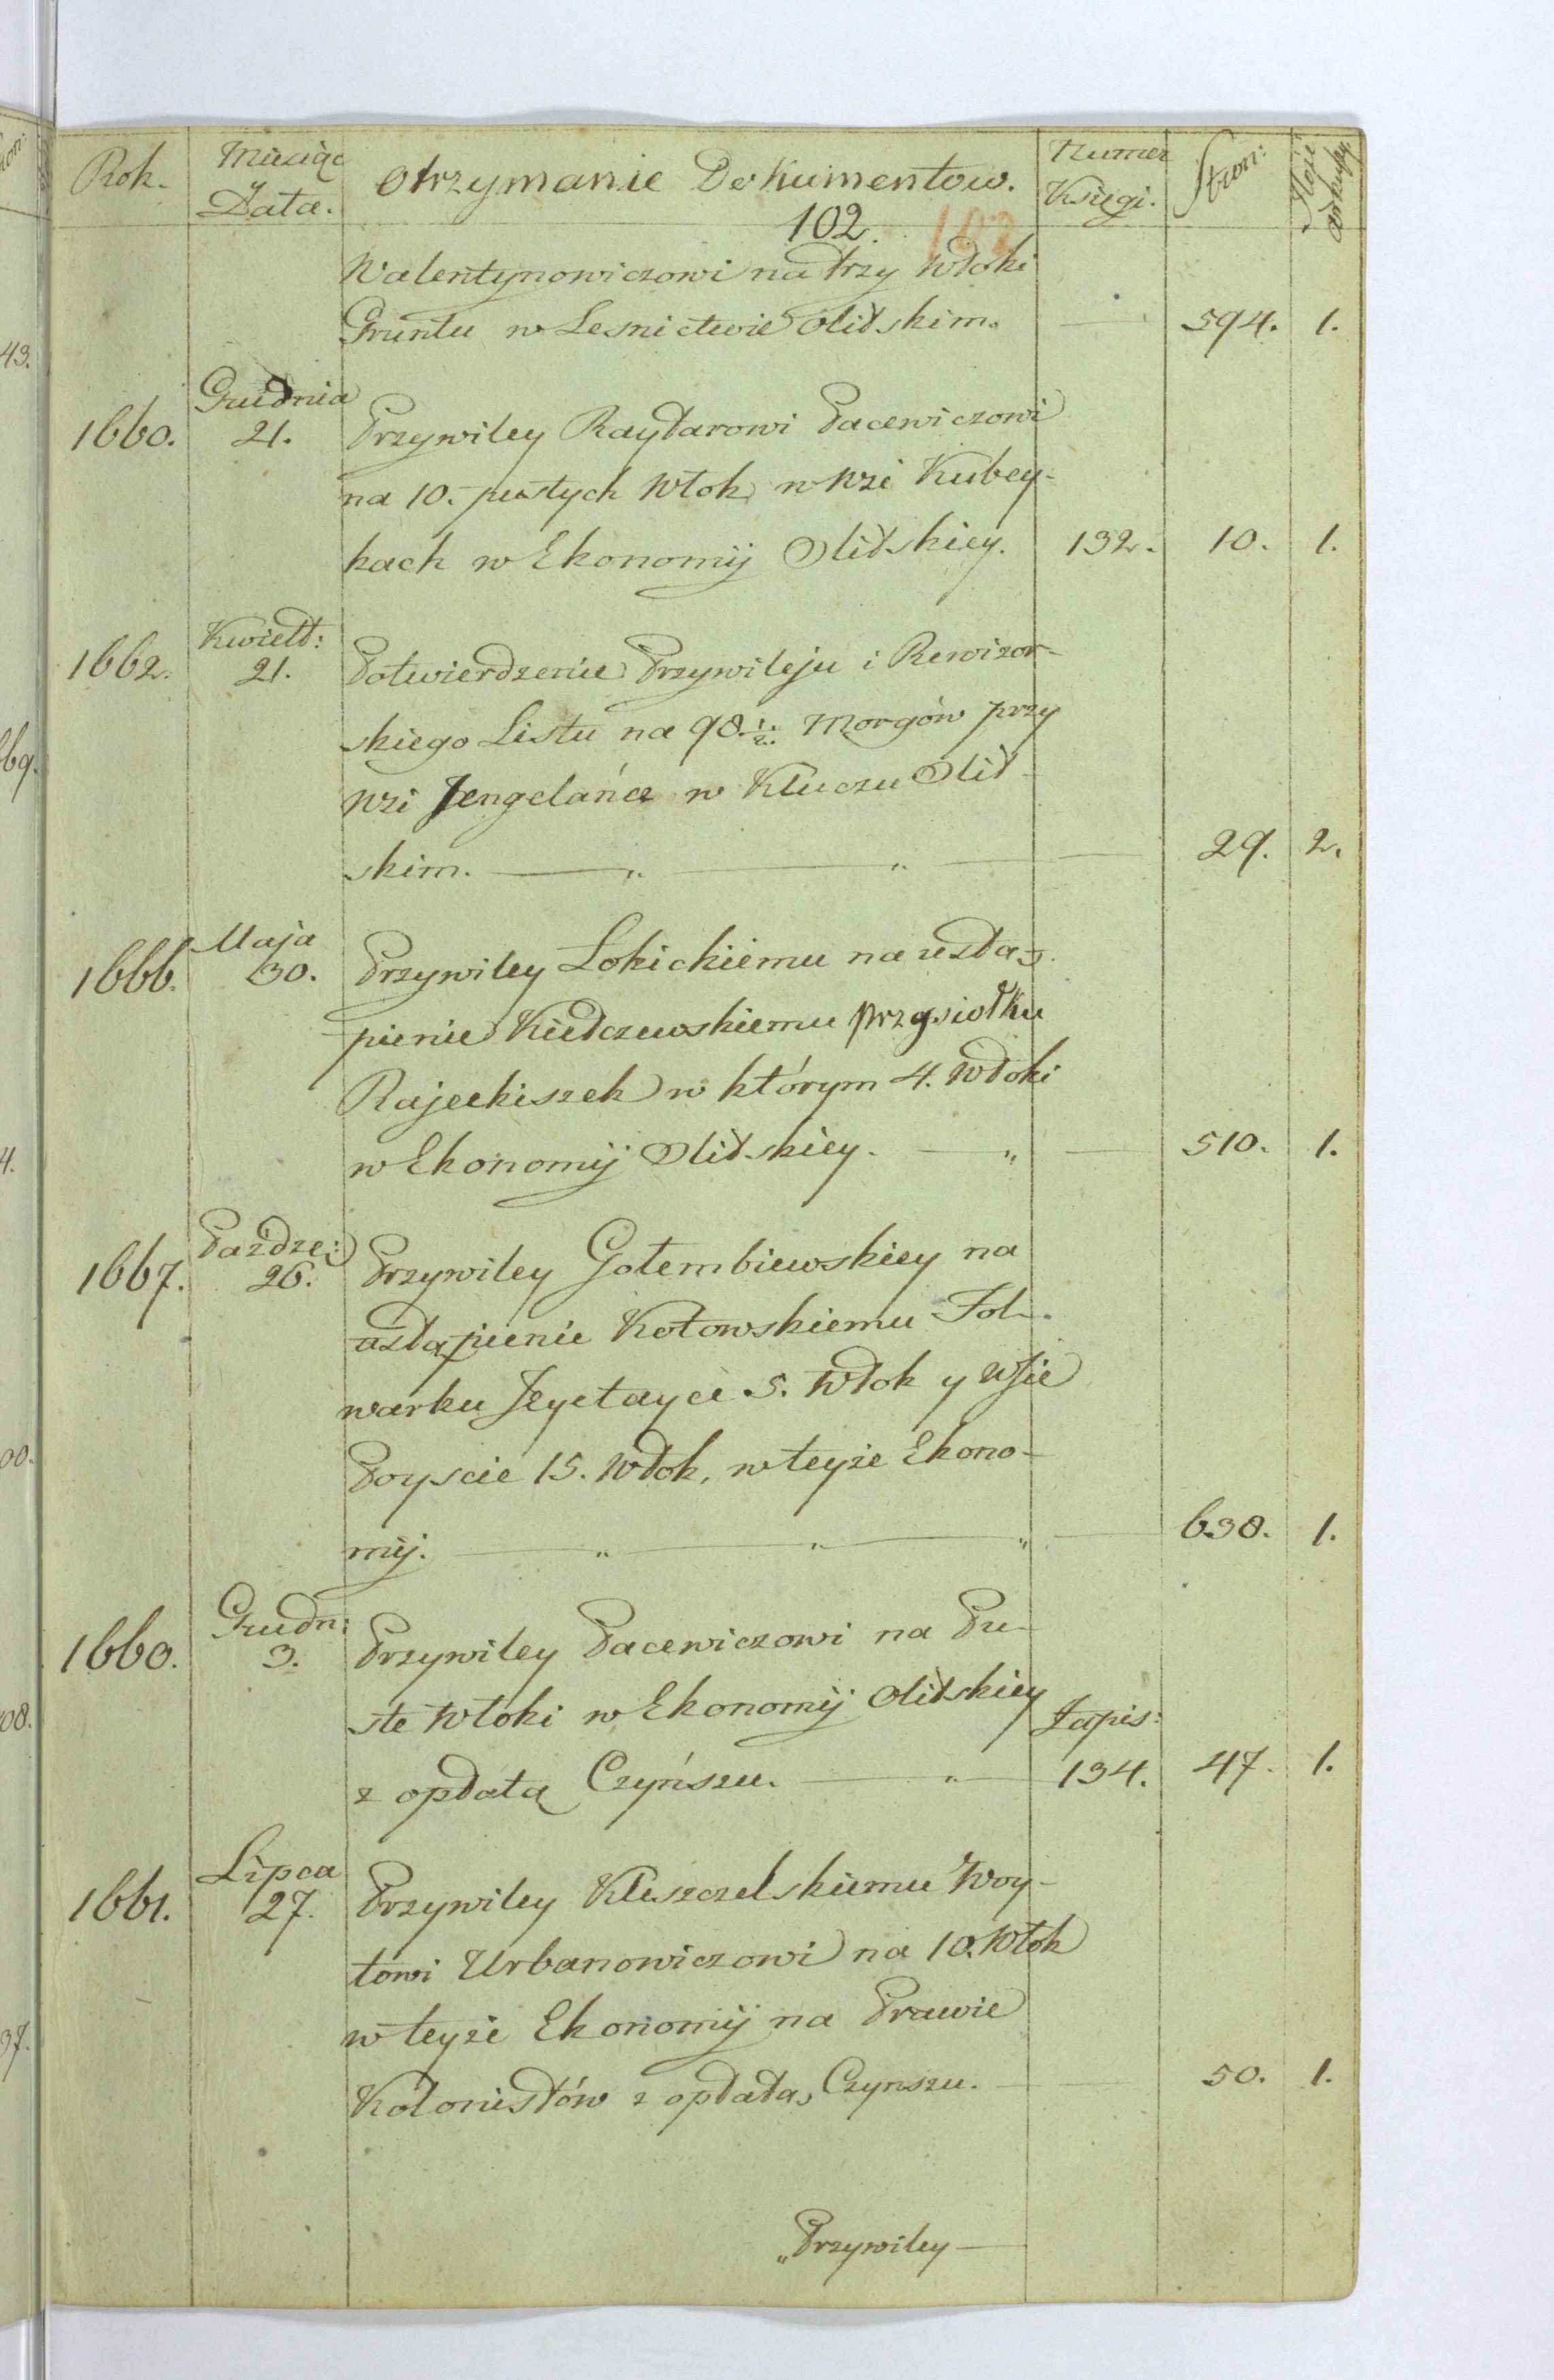 Rok. Miesiąc Data. Otrzymanie Dokumentow. Numer Księgi. Stron: Ilość arkuszy
102. 102
Walentynowiczowi na trzy Włoki
Gruntu w Lesnictwie Olitskim. — 594. 1.
1660. Grudnia 21. Przywiley Raytarowi Pacewiczowi
na 10. pustych Włok w Wsi Kubey-
kach w Ekonomij Olitskiey. 132. 10. 1.
1662. Kwiett: 21. Potwierdzenie Przywileju i Rewizor-
skiego Listu na 98. ½. Morgów przy
Wsi Jengelańce w Kluczu Olit-
skim. — „ — „ — 29. 2.
1666. Maja 30. Przywiley Lokickiemu na ustą-
pienie Kiedczewskiemu przysiołku
Rajeckiszek w którym 4. Włoki
w Ekonomij Olitskiey. — „ — 510. 1.
1667. Pazdze: 26. Przywiley Gołembiewskiey na
ustąpienie Kotowskiemu Fol-
warku Jeyctayce 5. Włok y Wsie
Poyscie 15. Włok, w teyże Ekono-
mij. — „ — „ — „ — 638. 1.
1660. Grudn: 3. Przywiley Pacewiczowi na Pu-
ste Włoki w Ekonomij Olitskiey
z opłatą Czyńszu. — „ — Zapis: 134. 47. 1.
1661. Lipca 27. Przywiley Kleszczelskiemu Woy-
towi Urbanowiczowi na 10. Włok
w teyże Ekonomij na Prawie
Kolonistów z opłatą Czynszu. — 50. 1.
„Przywiley —